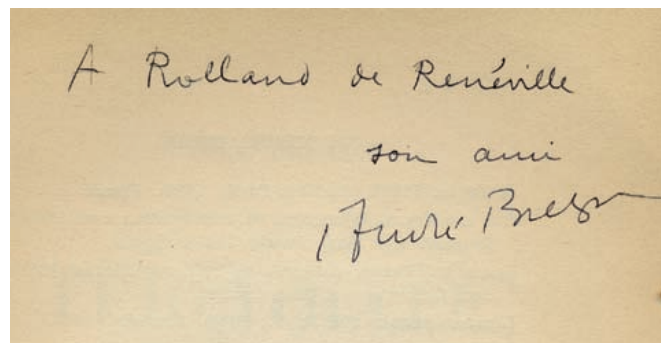 A Rolland de Renéville
son ami
André Breton